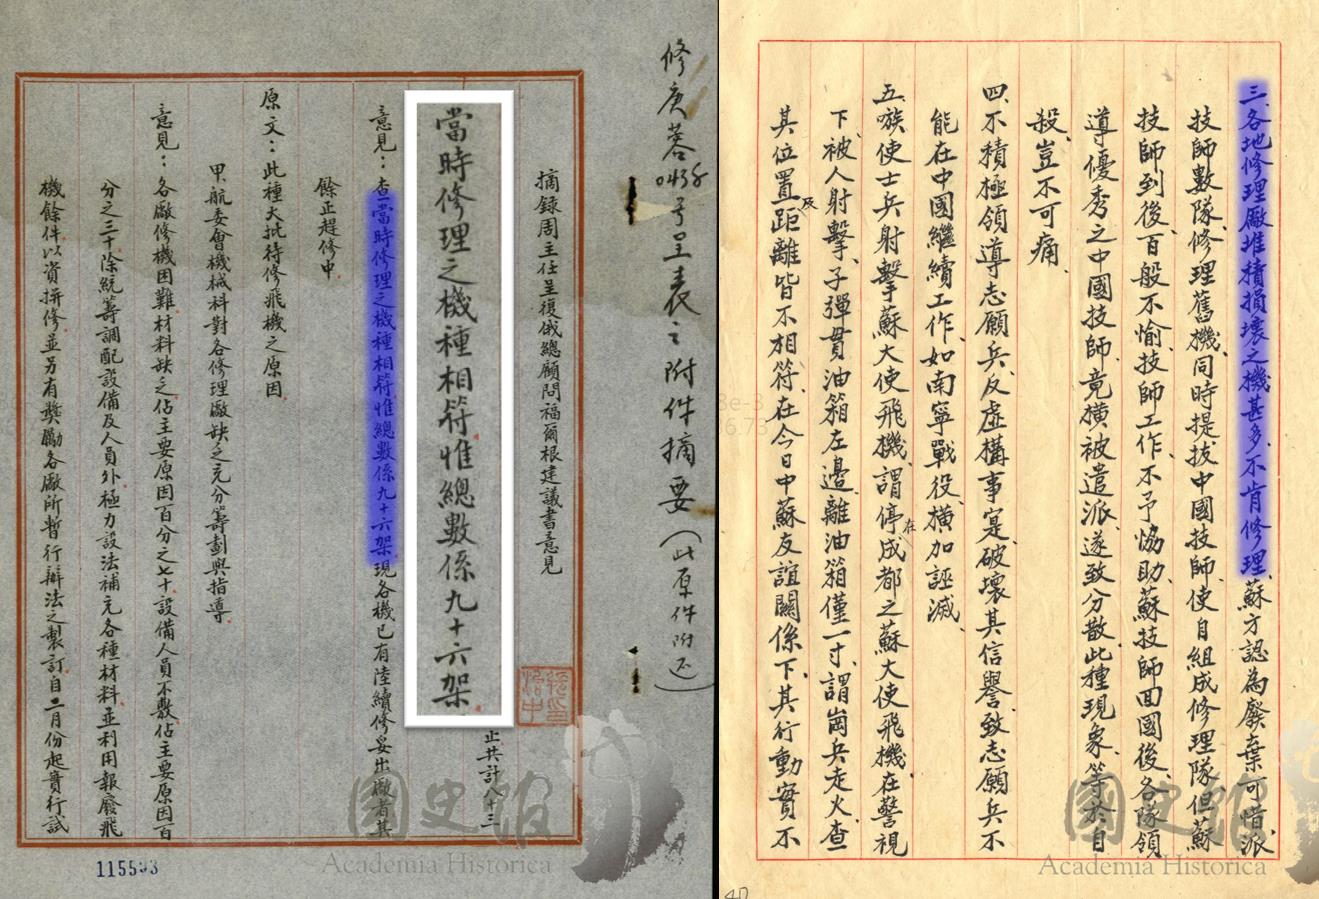 修庚蓉0438号呈表之附件摘要(此原件附还)
摘錄周主任呈復俄總顧問福爾根建議書意見
止共計八十三
當時修理之機種相符惟總數係九十六架
意見：查當時修理之機種相符惟總數係九十六架現各機已有陸續修妥出廠者其
餘正趕修中
原文：此種大批待修飛機之原因
甲航委會機械科對各修理廠缺乏充分籌劃與指導
意見：各廠修機困難材料缺乏佔主要原因百分之七十設備人員不敷佔主要原因百
分之三十除統籌調配設備及人員外極力設法補充各種材料並利用報廢飛
機餘件以資拼修並另有獎勵各廠所暫行辦法之製訂自二月份起實行試
115593
三、各地修理廠堆積損壞之機甚多不肯修理蘇方認為廢棄可惜派
技師數隊修理舊機同時提拔中國技師使自組成修理隊但蘇
技師到後百般不愉技師工作不予協助蘇技師回國後各隊領
導優秀之中國技師竟橫被遣派遂致分散此種現象等於自
殺豈不可痛
四、不積極領導志願兵反虛構事寔破壞其信譽致志願兵不
能在中國繼續工作如南寧戰役橫加誣滅
五、嗾使士兵射擊蘇大使飛機謂停在成都之蘇大使飛機在警視
下被人射擊子彈貫油箱左邊離油箱僅一寸謂崗兵走火查
其位置及距離皆不相符在今日中蘇友誼關係下其行動實不
國史館
Academia Historica
國史館
Academia Historica